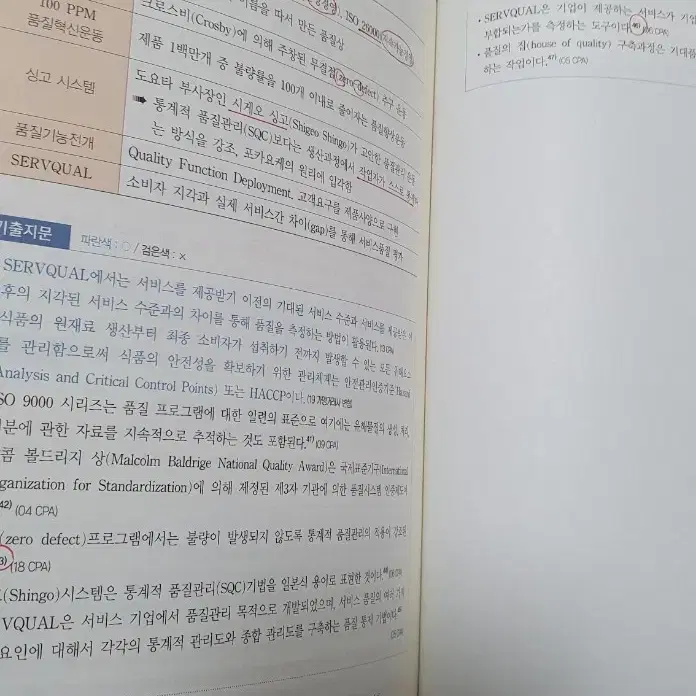 이름을 따서 만든 품질상
100 PPM
품질혁신운동
크로스비(Crosby)에 의해 주창된 무결점(zero defect) 추구 운동
제품 1백만개 중 불량률을 100개 이내로 줄이자는 품질향상운동
싱고 시스템
도요타 부사장인 시게오 싱고(Shigeo Shingo)가 고안한 품질관리
➡ 통계적 품질관리(SQC)보다는 생산과정에서 작업자가 스스로
는 방식을 강조, 포카요케의 원리에 입각함
품질기능전개
Quality Function Deployment, 고객요구를 제품사양으로
SERVQUAL
소비자 지각과 실제 서비스간 차이(gap)를 통해 서비스품질
기출지문
파란색 : ○ / 검은색 : ×
SERVQUAL에서는 서비스를 제공받기 이전의 기대된 서비스 수준과 서비스를 제공받은
후의 지각된 서비스 수준과의 차이를 통해 품질을 측정하는 방법이 활용된다.
식품의 원재료 생산부터 최종 소비자가 섭취하기 전까지 발생할 수 있는 모든
를 관리함으로써 식품의 안전성을 확보하기 위한 관리체계는 안전관리인증기준(Hazard
Analysis and Critical Control Points) 또는 HACCP이다.
ISO 9000 시리즈는 품질 프로그램에 대한 일련의 표준으로 여기에는 유해물질의 생성,
분에 관한 자료를 지속적으로 추적하는 것도 포함된다.41) (09 CPA)
콤 볼드리지 상(Malcolm Baldrige National Quality Award)은 국제표준기구(International
ganization for Standardization)에 의해 제정된 제3자 기관에 의한 품질시스템 인증제도
42) (04 CPA)
(zero defect)프로그램에서는 불량이 발생되지 않도록 통계적 품질관리의 적용이 강조된
3) (18 CPA)
(Shingo)시스템은 통계적 품질관리(SQC)기법을 일본식 용어로 표현한 것이다.
VQUAL은 서비스 기업에서 품질관리 목적으로 개발되었으며, 서비스 품질의
요인에 대해서 각각의 통계적 관리도와 종합 관리도를 구축하는 품질 통제 기법이다.
• SERVQUAL은 기업이 제공하는 서비스가
부합되는가를 측정하는 도구이다.46) (06 CPA)
• 품질의 집(house of quality) 구축과정은
하는 작업이다.47) (05 CPA)